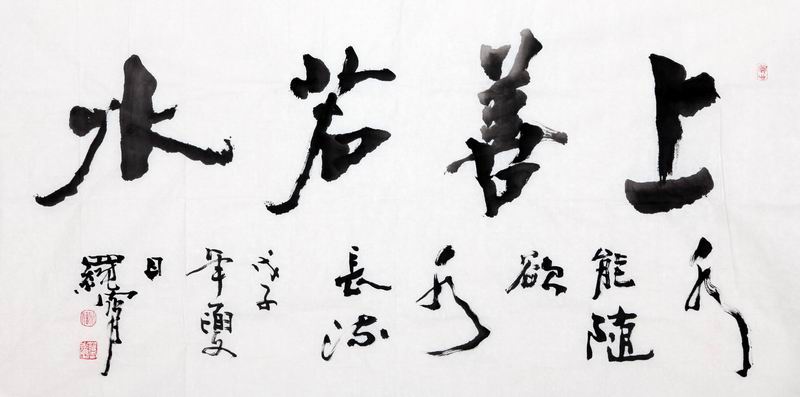 上善若水
能
随
欲
長
流
戊子
年夏
日
羅